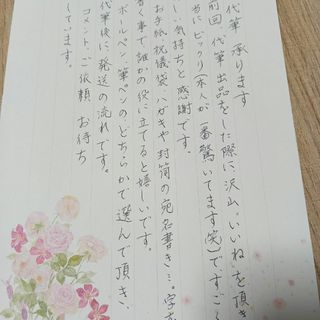 代筆 承ります
前回 代筆出品をした際に、沢山、いいねを頂き
当に ビックリ(本人が一番驚いてます(笑)ですごく
しい気持ちと感謝です。
お手紙、祝儀袋、ハガキや封筒の宛名書き…。字を
書く事で誰かの役に立てると嬉しいです。
ボールペン、筆ペンのどちらかで選んで頂き、
代筆後に発送の流れです。
コメント、ご依頼 お待ち
しています。